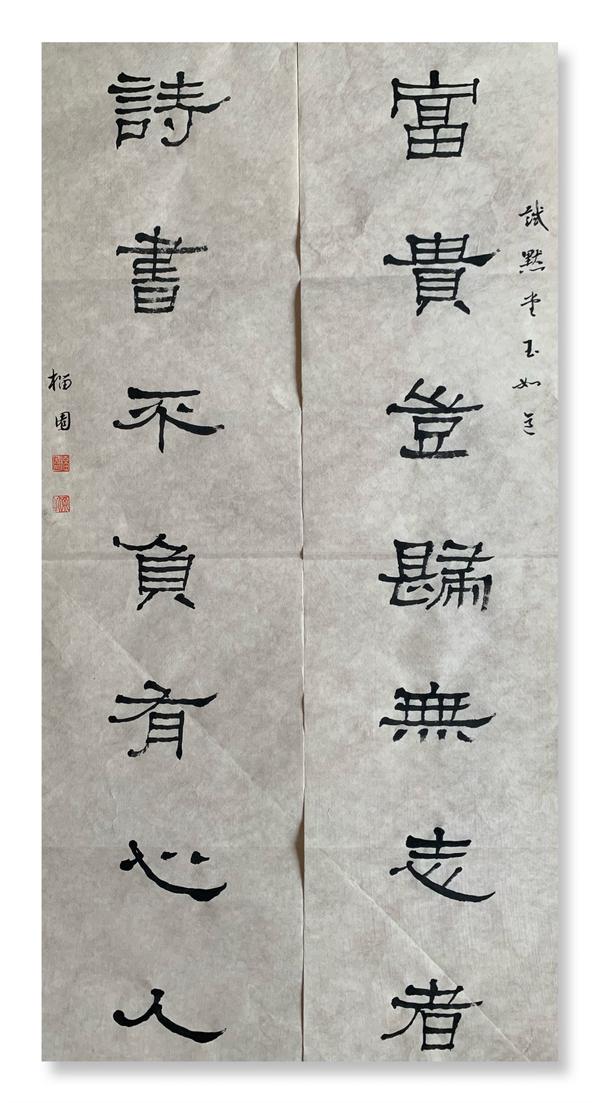 富貴豈關無志者
試默堂玉如墨
詩書不負有心人
榴園